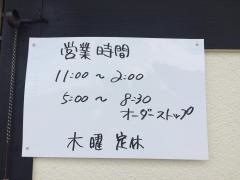 営業時間
11:00〜2:00
5:00〜8:30
オーダーストップ
木曜 定休